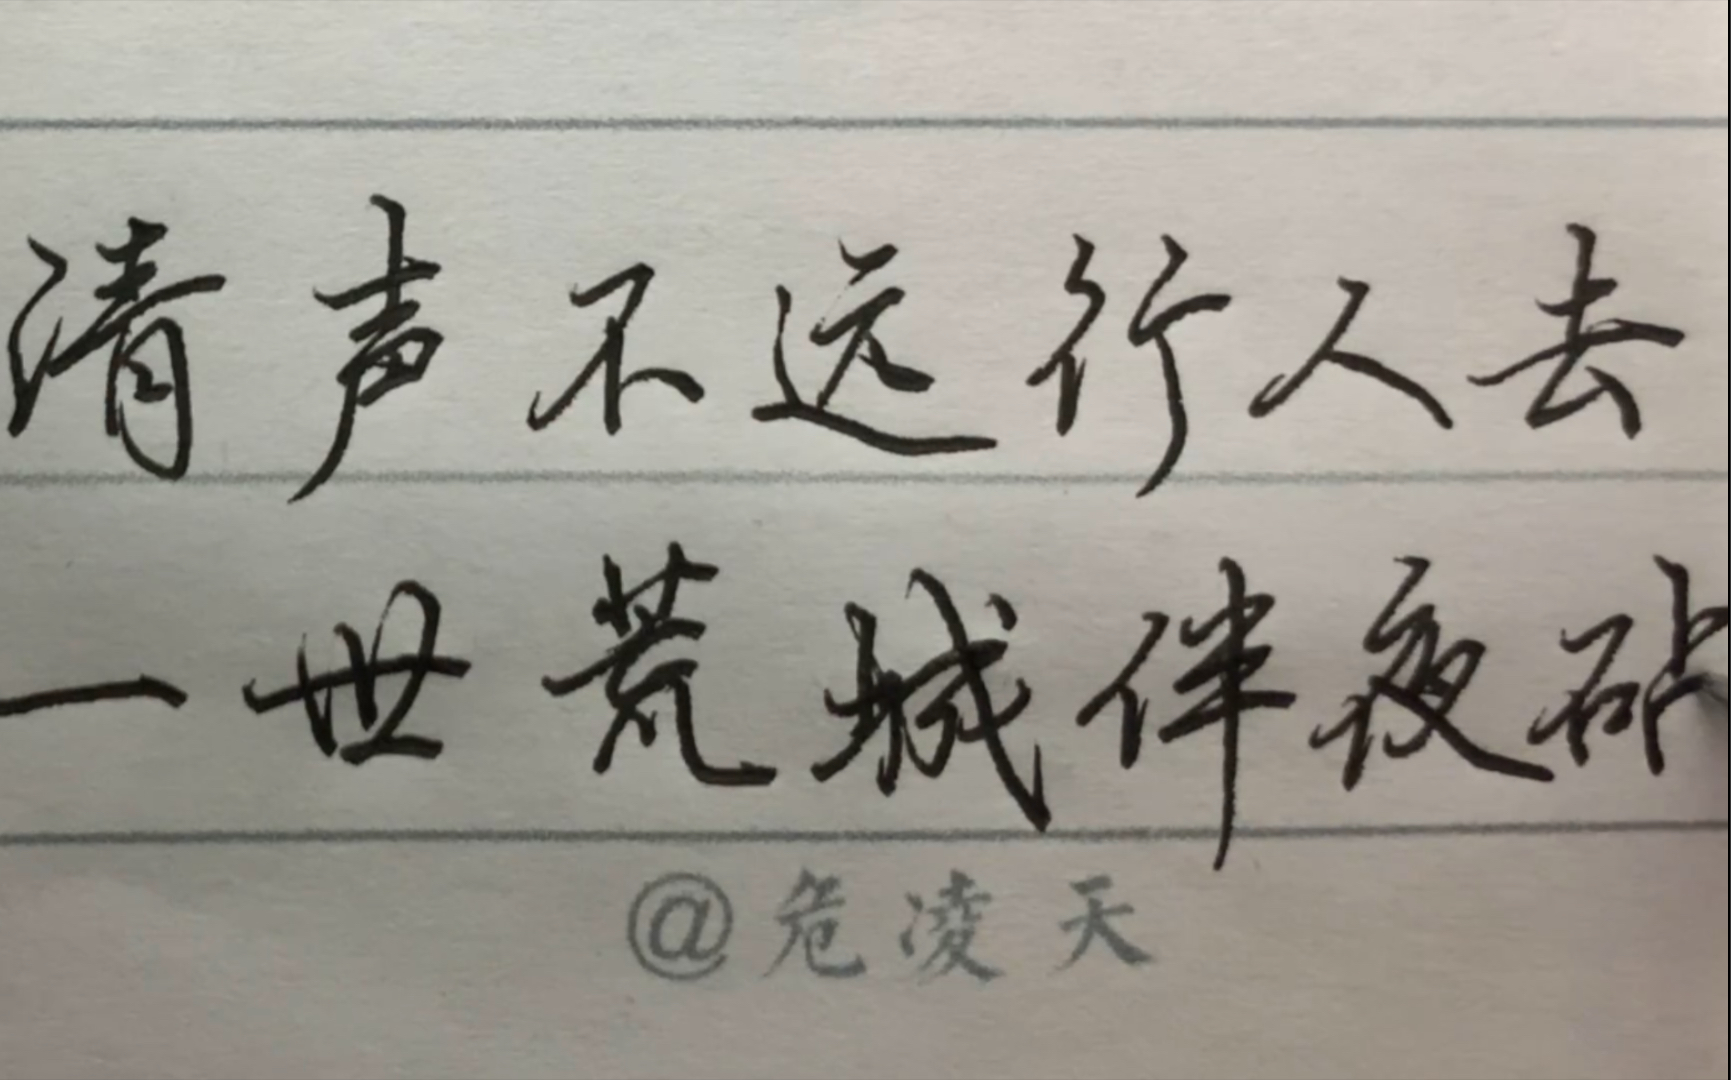 清声不远行人去
一世荒城伴夜砧
@危凌天